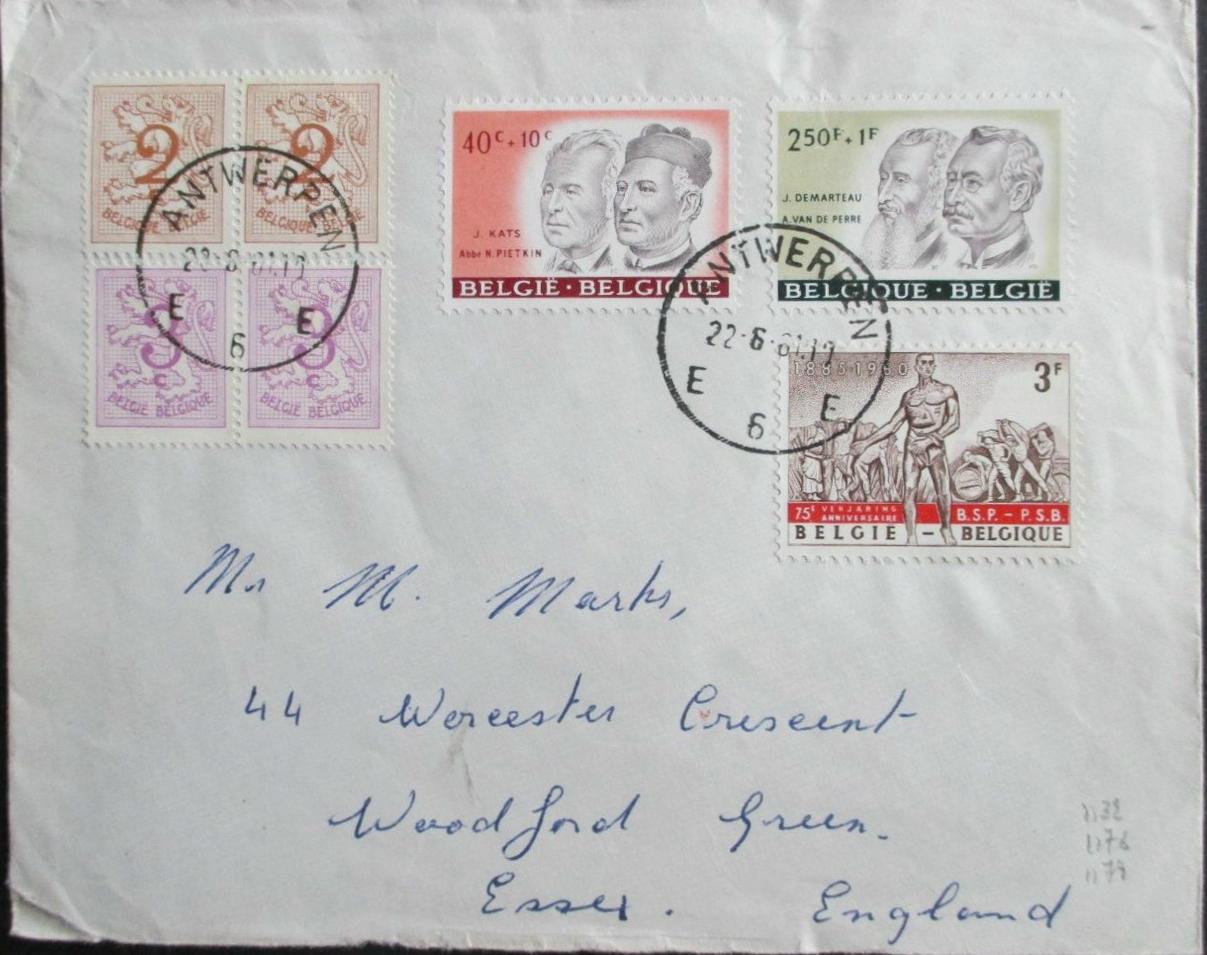 2 2
BELGIE BELGIQUE BELGIE BELGIQUE
3 3
BELGIE BELGIQUE BELGIE BELGIQUE
ANTWERPEN
22-6-61.19
E E
6
40C + 10C
J. KATS
Abbé N. PIETKIN
BELGIË · BELGIQUE
250F + 1F
J. DEMARTEAU
A. VAN DE PERRE
BELGIQUE · BELGIË
ANTWERPEN
22-6-61.19
E E
6
1885-1960 3F
75E VERJARING
ANNIVERSAIRE
B.S.P. - P.S.B.
BELGIË - BELGIQUE
Mr M. Marks,
44 Worcester Crescent
Woodford Green.
Essex. England
1132
1176
1179